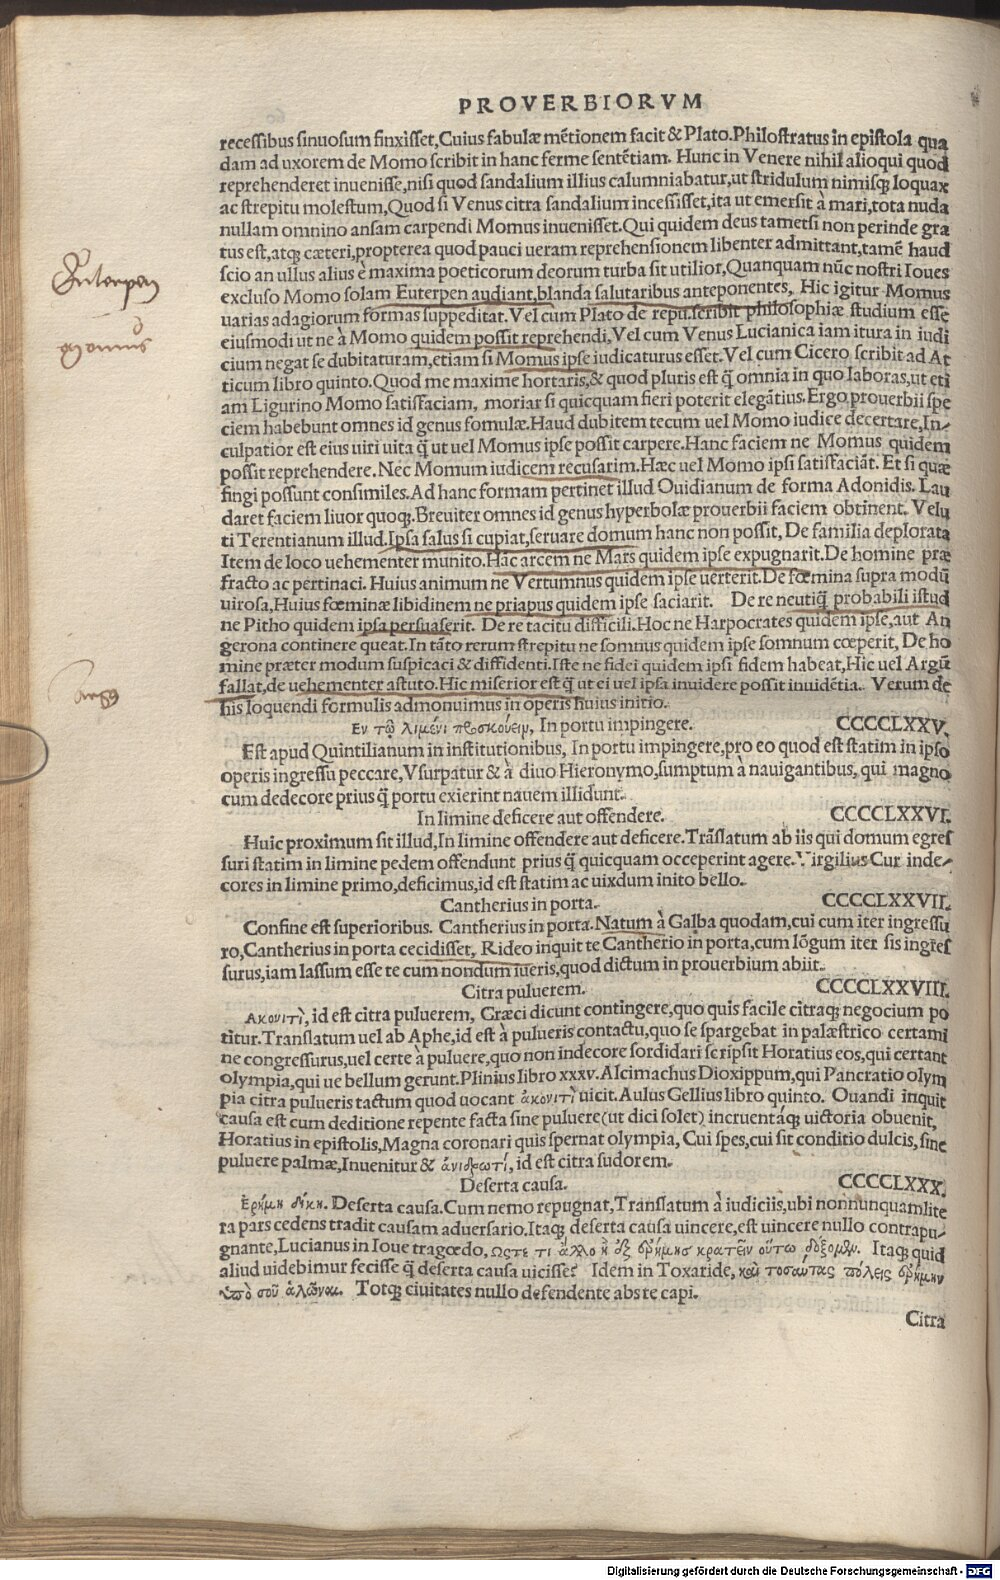 PROVERBIORVM
recessibus sinuosum finxisset,Cuius fabulæ mẽtionem facit & Plato.Philostratus in epistola qua
dam ad uxorem de Momo scribit in hanc ferme sentẽtiam. Hunc in Venere nihil alioqui quod
reprehenderet inuenisse,nisi quod sandalium illius calumniabatur,ut stridulum nimisq; loquax
ac strepitu molestum,Quod si Venus citra sandalium incessisset,ita ut emersit à mari,tota nuda
nullam omnino ansam carpendi Momus inuenisset.Qui quidem deus tametsi non perinde gra
tus est,atq; cæteri,propterea quod pauci ueram reprehensionem libenter admittant,tamẽ haud
scio an ullus alius e maxima poeticorum deorum turba sit utilior,Quanquam nũc nostri Ioues
excluso Momo solam Euterpen audiant,blanda salutaribus anteponentes, Hic igitur Momus
uarias adagiorum formas suppeditat. Vel cum Plato de repu.scribit philosophiæ studium esse
eiusmodi ut ne à Momo quidem possit reprehendi,Vel cum Venus Lucianica iam itura in iudi
cium negat se dubitaturam,etiam si Momus ipse iudicaturus esset.Vel cum Cicero scribit ad At
ticum libro quinto.Quod me maxime hortaris,& quod pluris est q̃ omnia in quo laboras,ut eti
am Ligurino Momo satisfaciam, moriar si quicquam fieri poterit elegãtius.Ergo prouerbii spe
ciem habebunt omnes id genus fomulæ.Haud dubitem tecum uel Momo iudice decertare,In-
culpatior est eius uiri uita q̃ ut uel Momus ipse possit carpere.Hanc faciem ne Momus quidem
possit reprehendere.Nec Momum iudicem recusarim.Hæc uel Momo ipsi satisfaciãt. Et si quæ
fingi possunt consimiles.Ad hanc formam pertinet illud Ouidianum de forma Adonidis. Lau
daret faciem liuor quoq;.Breuiter omnes id genus hyperbolæ prouerbii faciem obtinent. Velu
ti Terentianum illud.Ipsa salus si cupiat,seruare domum hanc non possit, De familia deplorata
Item de loco uehementer munito.Hãc arcem ne Mars quidem ipse expugnarit.De homine præ
fracto ac pertinaci. Huius animum ne Vertumnus quidem ipse uerterit.De fœmina supra modũ
uirosa,Huius fœminæ libidinem ne priapus quidem ipse saciarit. De re neutiq̃ probabili istud
ne Pitho quidem ipsa persuaserit. De re tacitu difficili.Hoc ne Harpocrates quidem ipse,aut An
gerona continere queat.In tãto rerum strepitu ne somnus quidem ipse somnum cœperit, De ho
mine præter modum suspicaci & diffidenti.Iste ne fidei quidem ipsi fidem habeat,Hic uel Argũ
fallat,de uehementer astuto.Hic miserior est q̃ ut ei uel ipsa inuidere possit inuidẽtia. Verum de
his loquendi formulis admonuimus in operis huius initio.
Ἐν τῷ λιμένι προσκούειν, In portu impingere. CCCCLXXV.
Est apud Quintilianum in institutionibus, In portu impingere,pro eo quod est statim in ipso
operis ingressu peccare,Vsurpatur & à diuo Hieronymo,sumptum à nauigantibus, qui magno
cum dedecore prius q̃ portu exierint nauem illidunt.
In limine deficere aut offendere. CCCCLXXVI.
Huic proximum sit illud,In limine offendere aut deficere.Trãslatum ab iis qui domum egres
suri statim in limine pedem offendunt prius q̃ quicquam occeperint agere.Virgilius Cur inde-
cores in limine primo,deficimus,id est statim ac uixdum inito bello.
Cantherius in porta. CCCCLXXVII.
Confine est superioribus. Cantherius in porta.Natum à Galba quodam,cui cum iter ingressu
ro,Cantherius in porta cecidisset, Rideo inquit te Cantherio in porta,cum lõgum iter sis ingres
surus,iam lassum esse te cum nondum iueris,quod dictum in prouerbium abiit.
Citra puluerem. CCCCLXXVIII.
Ακονιτὶ,id est citra puluerem, Græci dicunt contingere,quo quis facile citraq; negocium po
titur.Translatum uel ab Aphe,id est à pulueris contactu,quo se spargebat in palæstrico certami
ne congressurus,uel certe à puluere,quo non indecore sordidari scripsit Horatius eos,qui certant
olympia,qui ue bellum gerunt.Plinius libro xxxv.Alcimachus Dioxippum,qui Pancratio olym
pia citra pulueris tactum quod uocant ἀκονιτὶ uicit.Aulus Gellius libro quinto. Ouandi inquit
causa est cum deditione repente facta sine puluere(ut dici solet) incruentáq; uictoria obuenit,
Horatius in epistolis,Magna coronari quis spernat olympia, Cui spes,cui sit conditio dulcis,sine
puluere palmæ,Inuenitur & ἀνιδρωτί, id est citra sudorem.
Deserta causa. CCCCLXXX.
Ἐρήμη δίκη. Deserta causa.Cum nemo repugnat,Translatum à iudiciis,ubi nonnunquam lite
ra pars cedens tradit causam aduersario.Itaq; deserta causa uincere,est uincere nullo contrapu-
gnante,Lucianus in Ioue tragœdo, ὥστε τι ἄλλο ἢ ἐξ ἐρήμης κρατεῖν οὕτω δόξομεν. Itaq; quid
aliud uidebimur fecisse q̃ deserta causa uicisse? Idem in Toxaride, καὶ τοσαύτας πόλεις ἐρήμην
ὑπὸ σοῦ ἁλῶναι. Totq; ciuitates nullo defendente abs te capi.
Citra
Euterpen
Momus
Argus
Digitalisierung gefördert durch die Deutsche Forschungsgemeinschaft - DFG